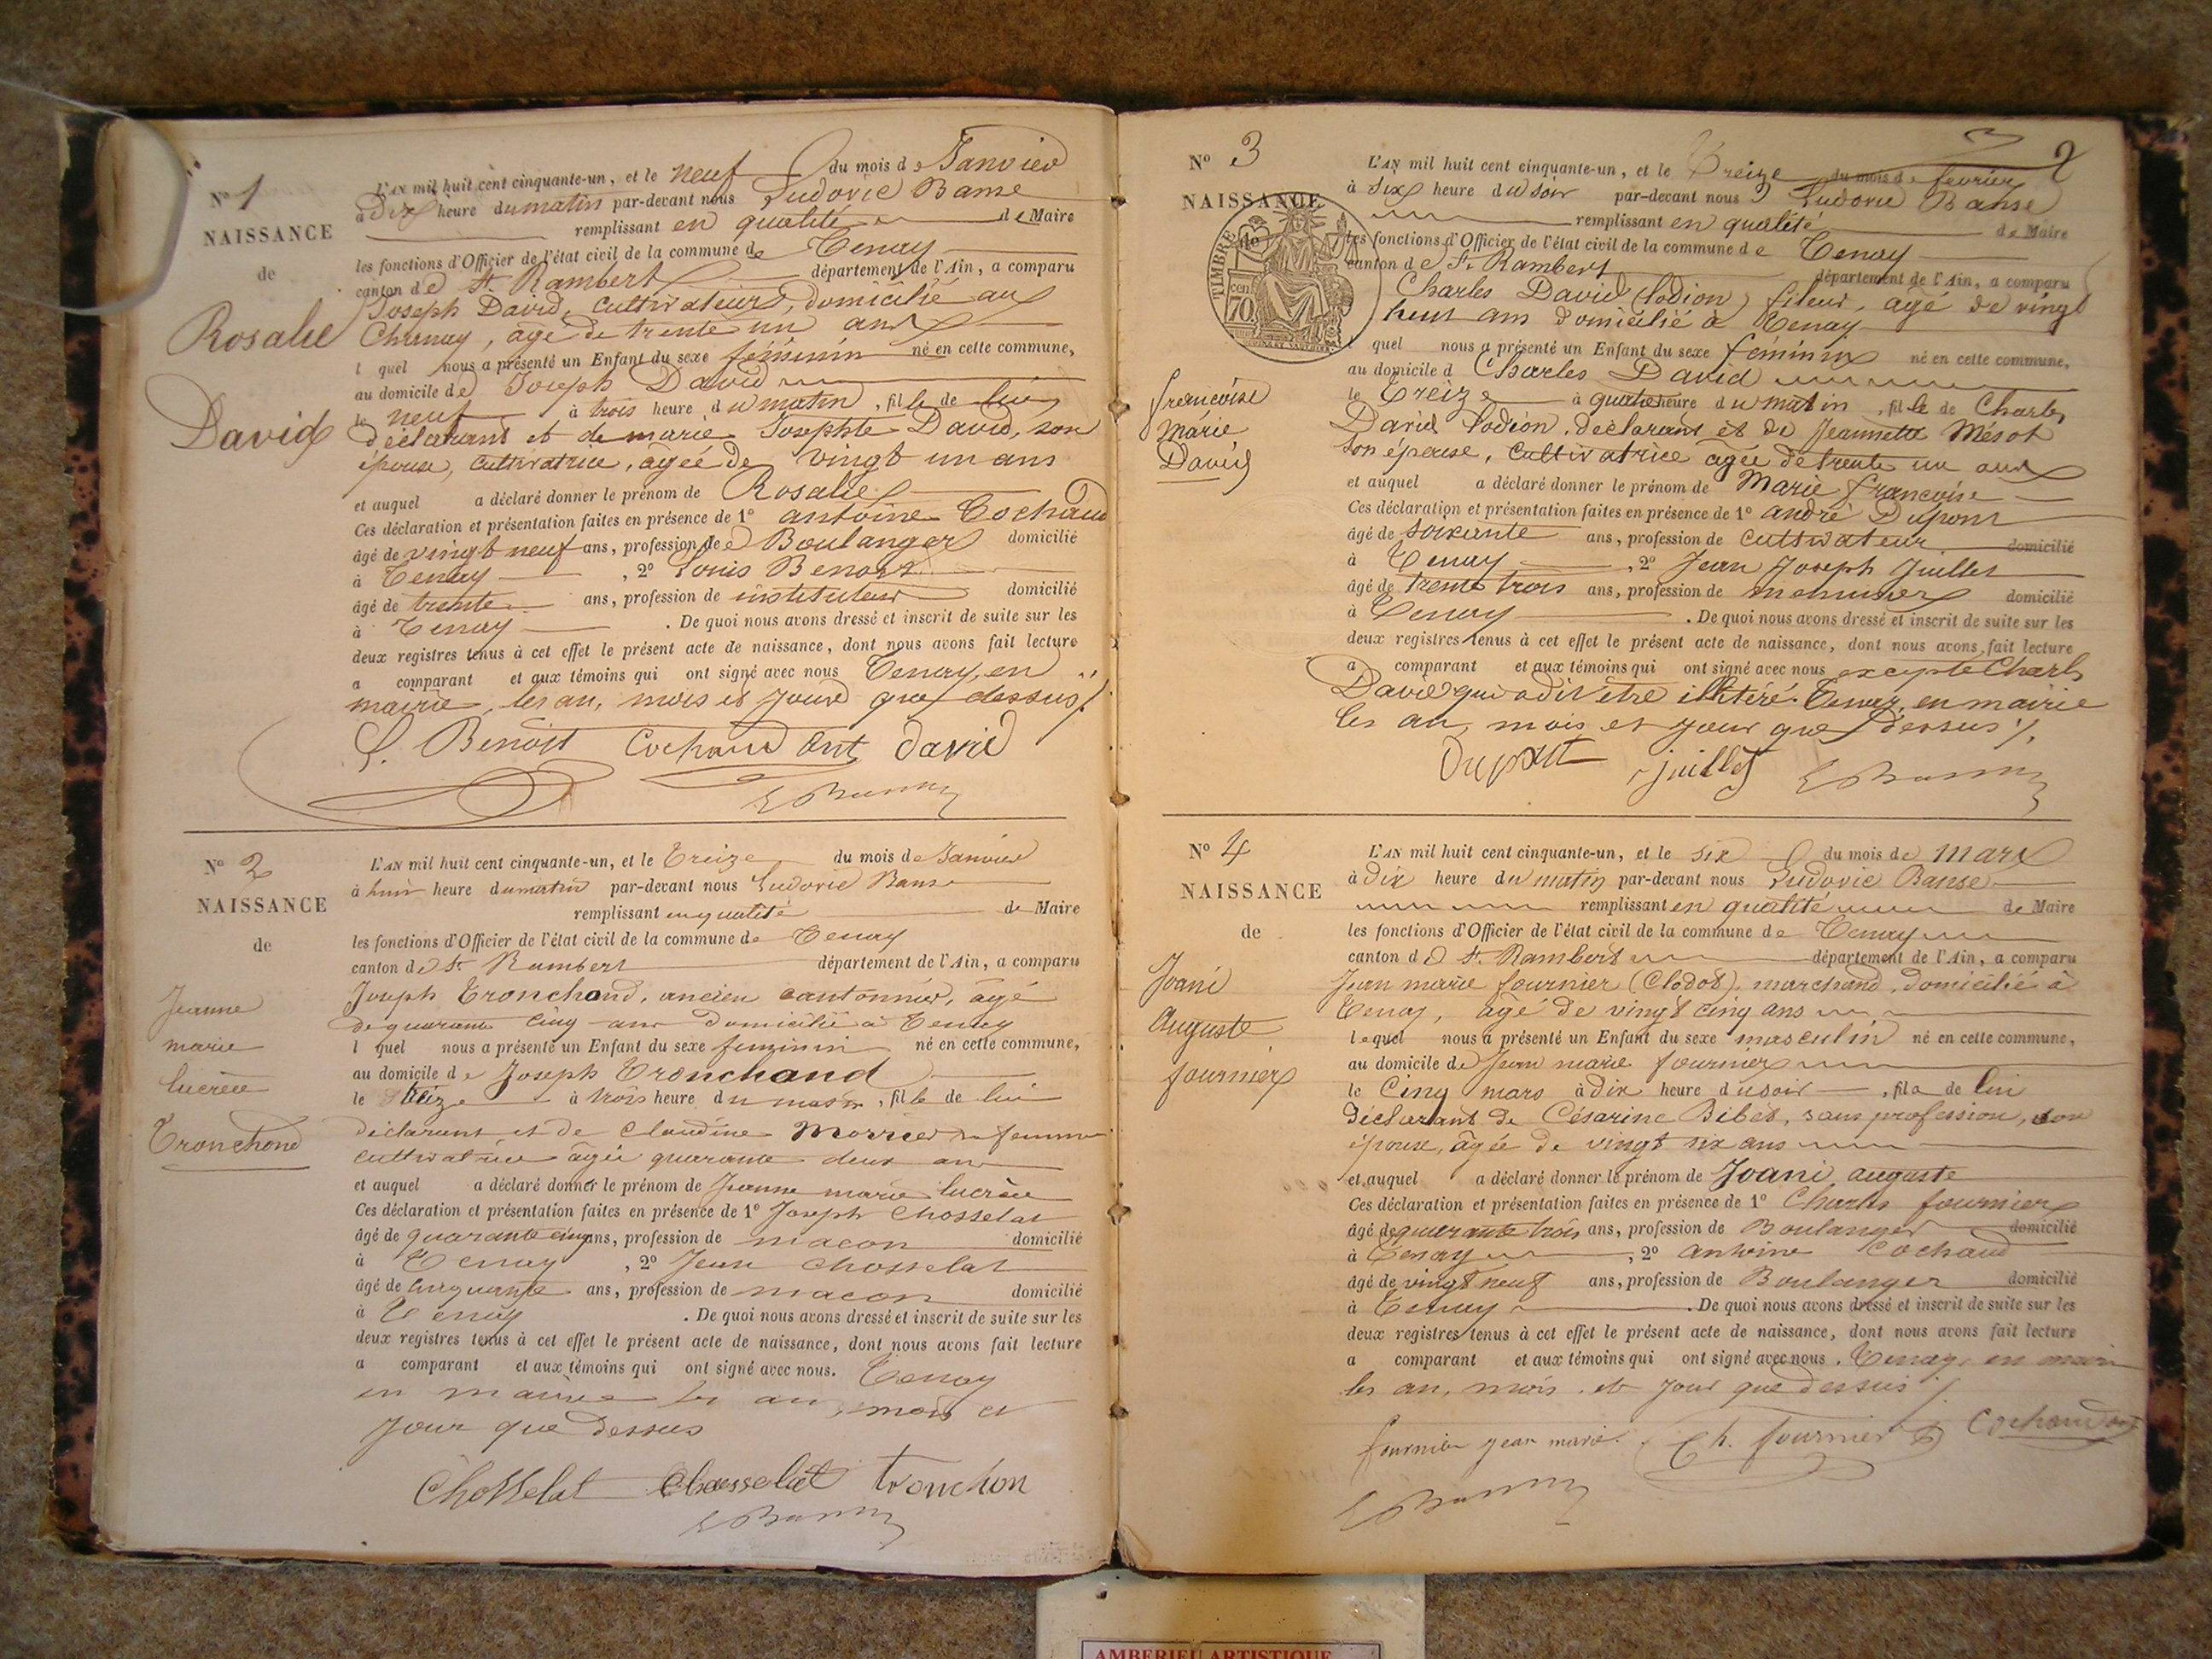 N° 1
NAISSANCE
de
Rosalie
David
L'AN mil huit cent cinquante-un, et le neuf du mois de Janvier
à Dix heure du matin par-devant nous Ludovic Banse
remplissant en qualité de Maire
les fonctions d'Officier de l'état civil de la commune de Tenay
canton de St Rambert département de l'Ain, a comparu
Joseph David, cultivateur, domicilié au
, agé de trente un ans
l quel nous a présenté un Enfant du sexe féminin né en cette commune,
au domicile de Joseph David
le neuf à trois heure du matin, fille de lui
déclarant et de marie Josephte David, son
épouse, cultivatrice, agée de vingt un ans
et auquel a déclaré donner le prénom de Rosalie
Ces déclaration et présentation faites en présence de 1° antoine Cochaud
âgé de vingt neuf ans, profession de Boulanger domicilié
à Tenay, 2° Louis Benoit
âgé de trente ans, profession de instituteur domicilié
à Tenay. De quoi nous avons dressé et inscrit de suite sur les
deux registres tenus à cet effet le présent acte de naissance, dont nous avons fait lecture
a comparant et aux témoins qui ont signé avec nous Tenay, en
mairie, les an, mois et jour que dessus ./.
L. Benoit Cochaud Ant David
N° 2
NAISSANCE
de
Jeanne
marie
lucrèce
Tronchond
L'AN mil huit cent cinquante-un, et le Treize du mois de Janvier
à huit heure du matin par-devant nous Ludovic Banse
remplissant en qualité de Maire
les fonctions d'Officier de l'état civil de la commune de Tenay
canton de St Rambert département de l'Ain, a comparu
Joseph Tronchond, ancien cantonnier, âgé
de quarante cinq ans domicilié à Tenay
l quel nous a présenté un Enfant du sexe feminin né en cette commune,
au domicile de Joseph Tronchand
le treize à trois heure du matin, fille de lui
déclarant et de Claudine sa femme
cultivatrice âgée quarante deux ans
et auquel a déclaré donner le prénom de Jeanne marie lucrèce
Ces déclaration et présentation faites en présence de 1° Joseph Chosselat
âgé de quarante cinq ans, profession de macon domicilié
à Tenay, 2° Jean Chosselat
âgé de cinquante ans, profession de macon domicilié
à Tenay. De quoi nous avons dressé et inscrit de suite sur les
deux registres tenus à cet effet le présent acte de naissance, dont nous avons fait lecture
a comparant et aux témoins qui ont signé avec nous. Tenay
en mairie les an, mois et
jour que dessus
Chosselat Chosselat tronchon
2
N° 3
NAISSANCE
TIMBRE
cen
70
francoise
Marie
David
L'AN mil huit cent cinquante-un, et le Treize du mois de fevrier
à six heure du soir par-devant nous Ludovic Banse
remplissant en qualité de Maire
les fonctions d'Officier de l'état civil de la commune de Tenay
canton de St Rambert département de l'Ain, a comparu
Charles David (lodion) fileur, agé de vingt
huit ans domicilié à Tenay
quel nous a présenté un Enfant du sexe féminin né en cette commune,
au domicile d Charles David
le Treize à quatre heure du matin, fille de Charles
David lodion, déclarant et de Jeannette Mésot
son épouse, cultivatrice agée de trente un ans
et auquel a déclaré donner le prénom de Marie francoise
Ces déclaration et présentation faites en présence de 1° andré Dupont
âgé de soixante ans, profession de cultivateur domicilié
à Tenay, 2° Jean Joseph Juillet
âgé de trente trois ans, profession de menuisier domicilié
à Tenay. De quoi nous avons dressé et inscrit de suite sur les
deux registres tenus à cet effet le présent acte de naissance, dont nous avons fait lecture
a comparant et aux témoins qui ont signé avec nous excepté Charles
David qui a dit être illitéré. Tenay, en mairie
les an, mois et jour que dessus ./.
Dupont juillet
N° 4
NAISSANCE
de
Joani
Auguste
fournier
L'AN mil huit cent cinquante-un, et le six du mois de mars
à dix heure du matin par-devant nous Ludovic Banse
remplissant en qualité de Maire
les fonctions d'Officier de l'état civil de la commune de Tenay
canton de St Rambert département de l'Ain, a comparu
Jean marie fournier (Clodot), marchand, domicilié à
Tenay, âgé de vingt cinq ans
lequel nous a présenté un Enfant du sexe masculin né en cette commune,
au domicile de Jean marie fournier
le Cinq mars à dix heure du soir, fils de lui
déclarant de Césarine Bibet, sans profession, son
épouse, âgée de vingt six ans
et auquel a déclaré donner le prénom de Joani auguste
Ces déclaration et présentation faites en présence de 1° Charles fournier
âgé de quarante trois ans, profession de Boulanger domicilié
à Tenay, 2° antoine Cochaud
âgé de vingt neuf ans, profession de Boulanger domicilié
à Tenay. De quoi nous avons dressé et inscrit de suite sur les
deux registres tenus à cet effet le présent acte de naissance, dont nous avons fait lecture
a comparant et aux témoins qui ont signé avec nous. Tenay, en mairie
les an, mois et jour que dessus ./.
fournier jean marie Ch. fournier Cochaud
AMBERIEU ARTISTIQUE